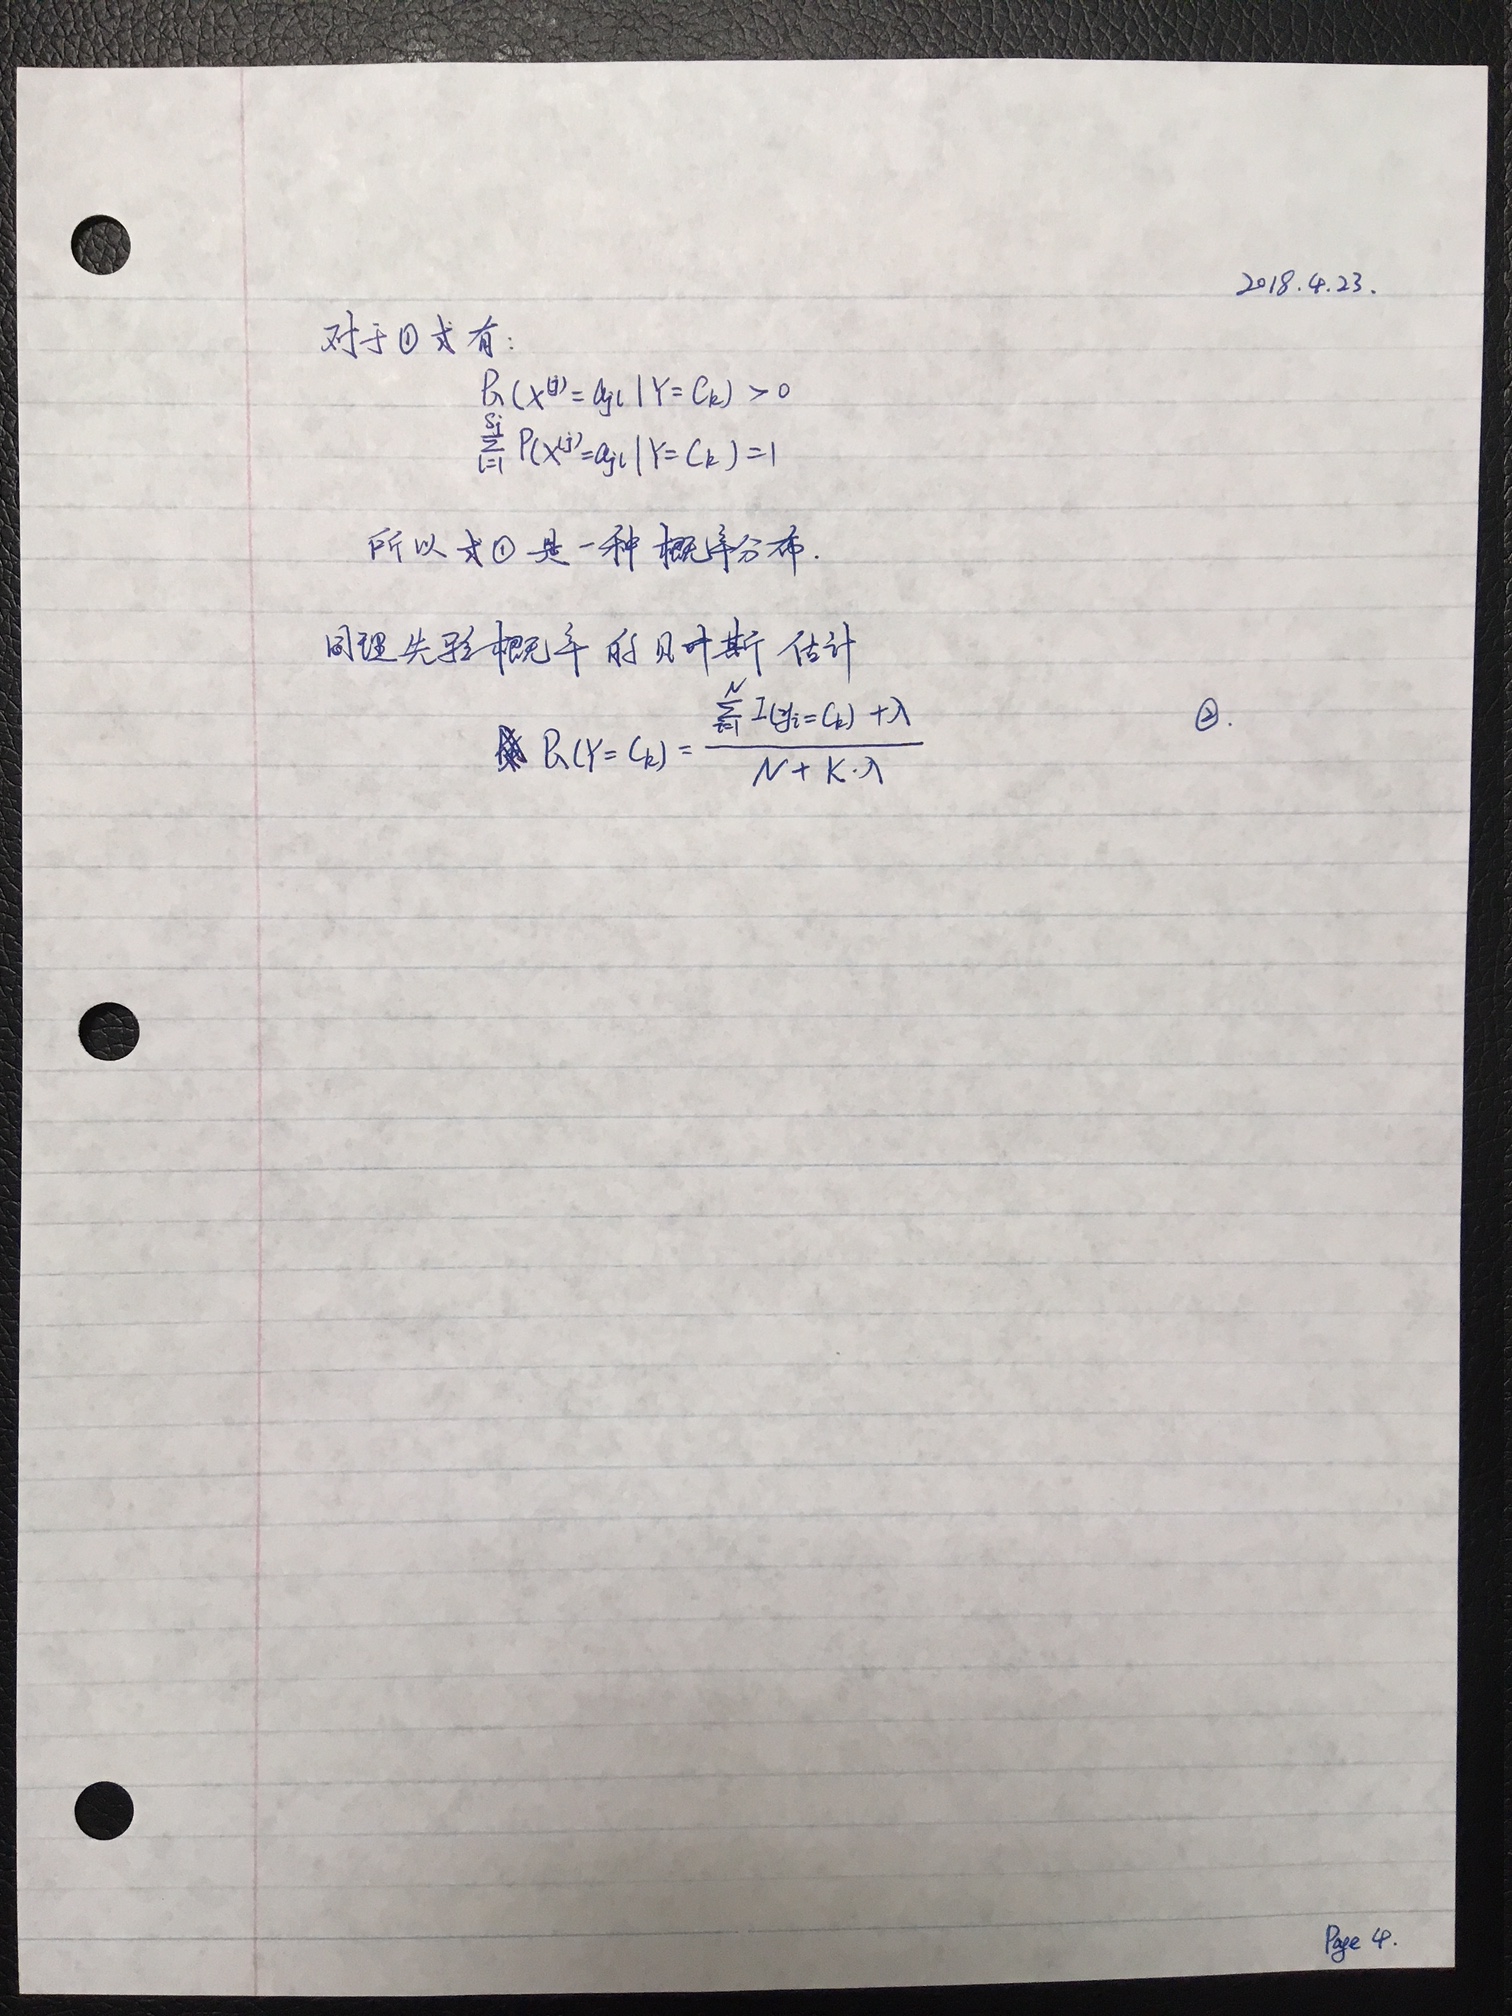 2018.4.23.
对于①式有:
Pλ(X^(j)=a_jl|Y=C_k)>0
∑_{l=1}^{S_j} P(X^(j)=a_jl|Y=C_k)=1
所以式①是一种概率分布.
同理先验概率的贝叶斯估计
Pλ(Y=C_k)=\frac{∑_{i=1}^{N} I(y_i=C_k)+λ}{N+K·λ} ②.
Page 4.